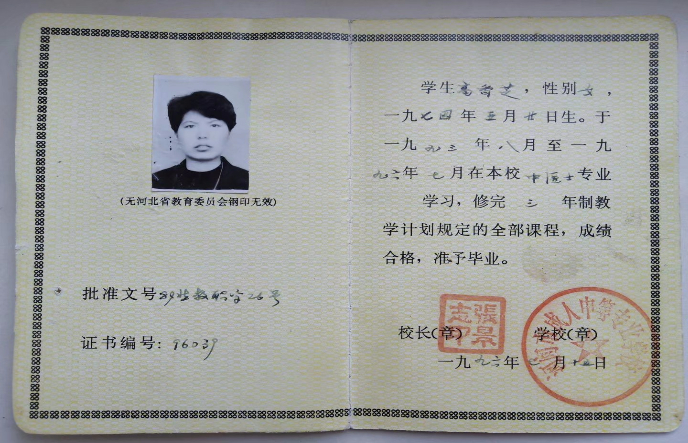 (无河北省教育委员会钢印无效)
批准文号:
证书编号: 96039
学生高 芝，性别女，
一九七四年三月廿日生。于
一九九三年八月至一九
九六年七月在本校中医士专业
学习，修完三年制教
学计划规定的全部课程，成绩
合格，准予毕业。
張景
志印
校长(章) 学校(章)
一九九六年七月十五日
成人中等专业学校